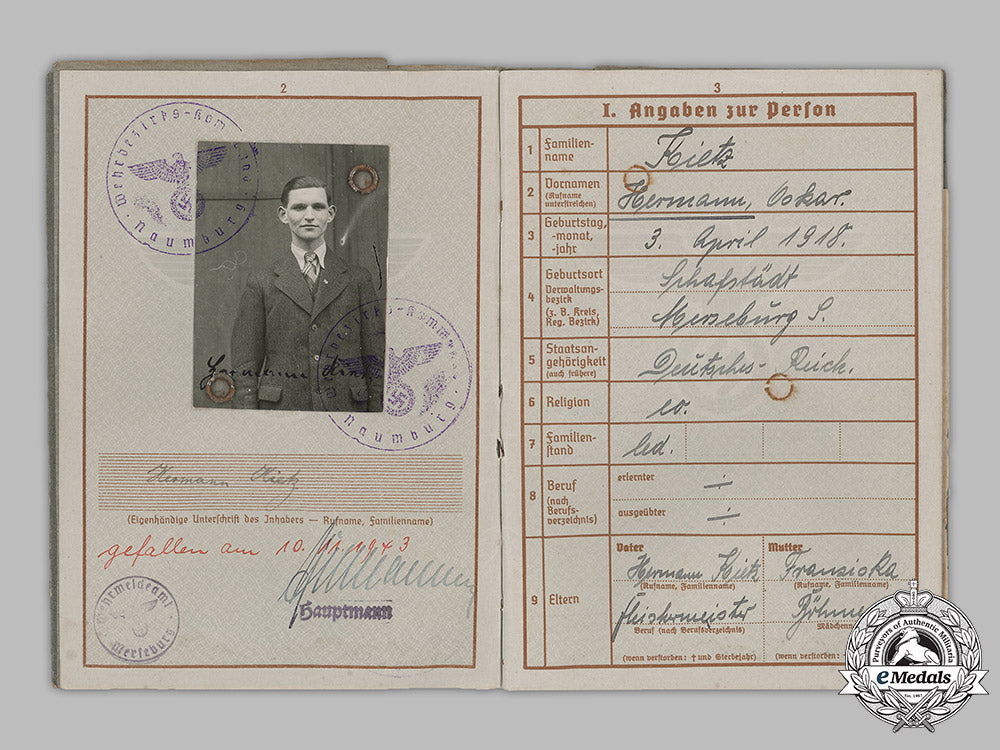 2
Wehrbezirks-Kom
Naumburg
Hermann
Wehrbezirks-Komm
Naumburg
Hermann Kietz
(Eigenhändige Unterschrift des Inhabers — Rufname, Familienname)
gefallen am 10. 1943
Hauptmann
Wehrmeldeamt
Merseburg
3
I. Angaben zur Person
1 Familien-
name
Kietz
2 Vornamen
(Rufname
unterstreichen)
Hermann, Oskar.
3 Geburtstag,
-monat,
-jahr
3. April 1918.
4 Geburtsort
Verwaltungs-
bezirk
(z. B. Kreis,
Reg. Bezirk)
Schafstädt
Merseburg S.
5 Staatsan-
gehörigkeit
(auch frühere)
Deutsches-Reich.
6 Religion
ev.
7 Familien-
stand
led.
8 Beruf
(nach
Berufs-
verzeichnis)
erlernter
÷
ausgeübter
÷
9 Eltern
Vater
Hermann Kietz
(Rufname, Familienname)
Fleischermeister
Beruf (nach Berufsverzeichnis)
(wenn verstorben: † und Sterbejahr)
Mutter
Franziska
(Rufname, Familienname)
Böhme
Mädchenn
(wenn verstorben:
Purveyors of Authentic Militaria
eMedals
Est. 1967